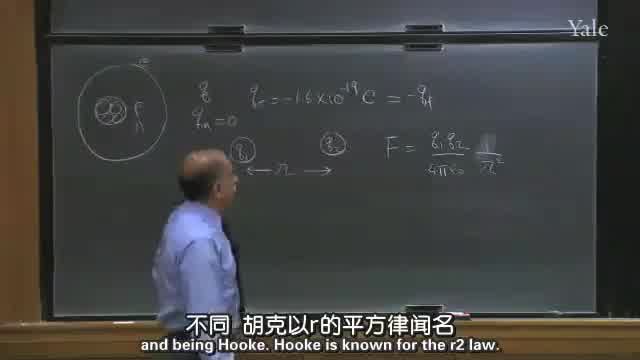 Yale
q qe = -1.6×10⁻¹⁹ C = -qp
qn = 0
q1 ← r → q2
F = q1q2/4πε0 1/r²
不同 胡克以r的平方律闻名
and being Hooke. Hooke is known for the r2 law.